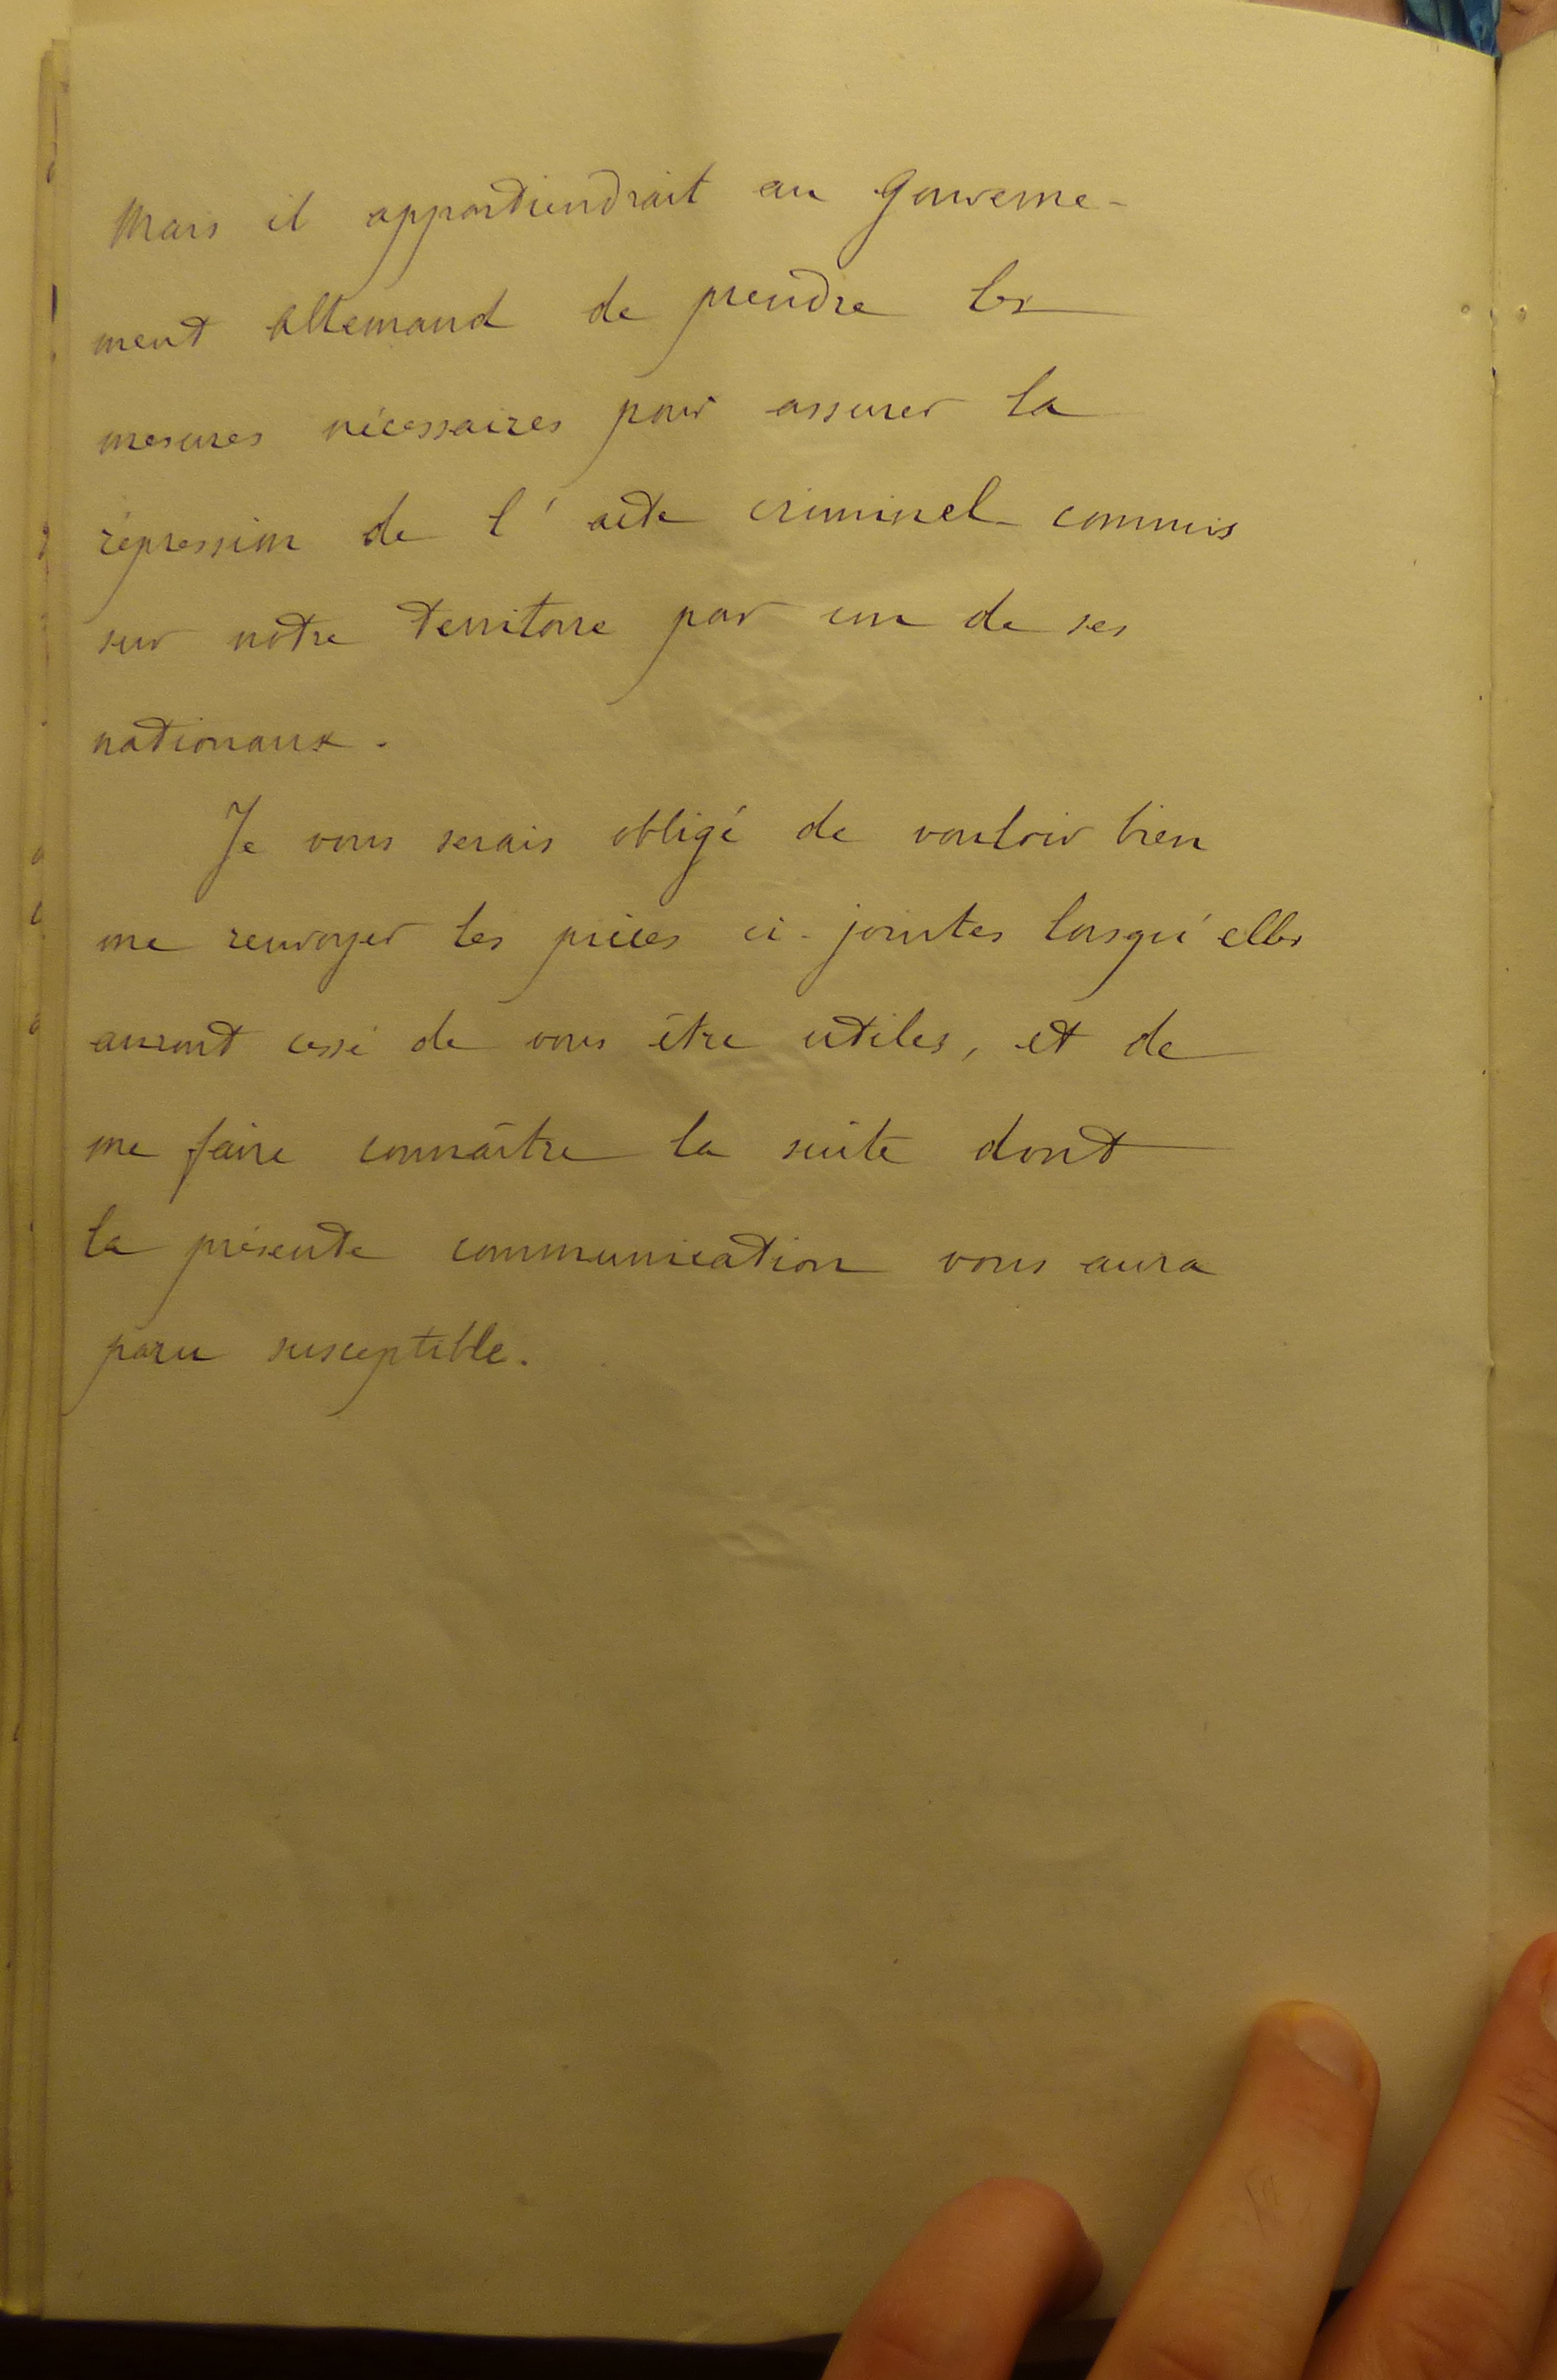 Mais il appartiendrait au Gouverne-
ment Allemand de prendre les
mesures nécessaires pour assurer la
répression de l'acte criminel commis
sur notre territoire par un de ses
nationaux.
Je vous serais obligé de vouloir bien
me renvoyer les pièces ci-jointes lorsqu'elles
auront cessé de vous être utiles, et de
me faire connaître la suite dont
la présente communication vous aura
paru susceptible.